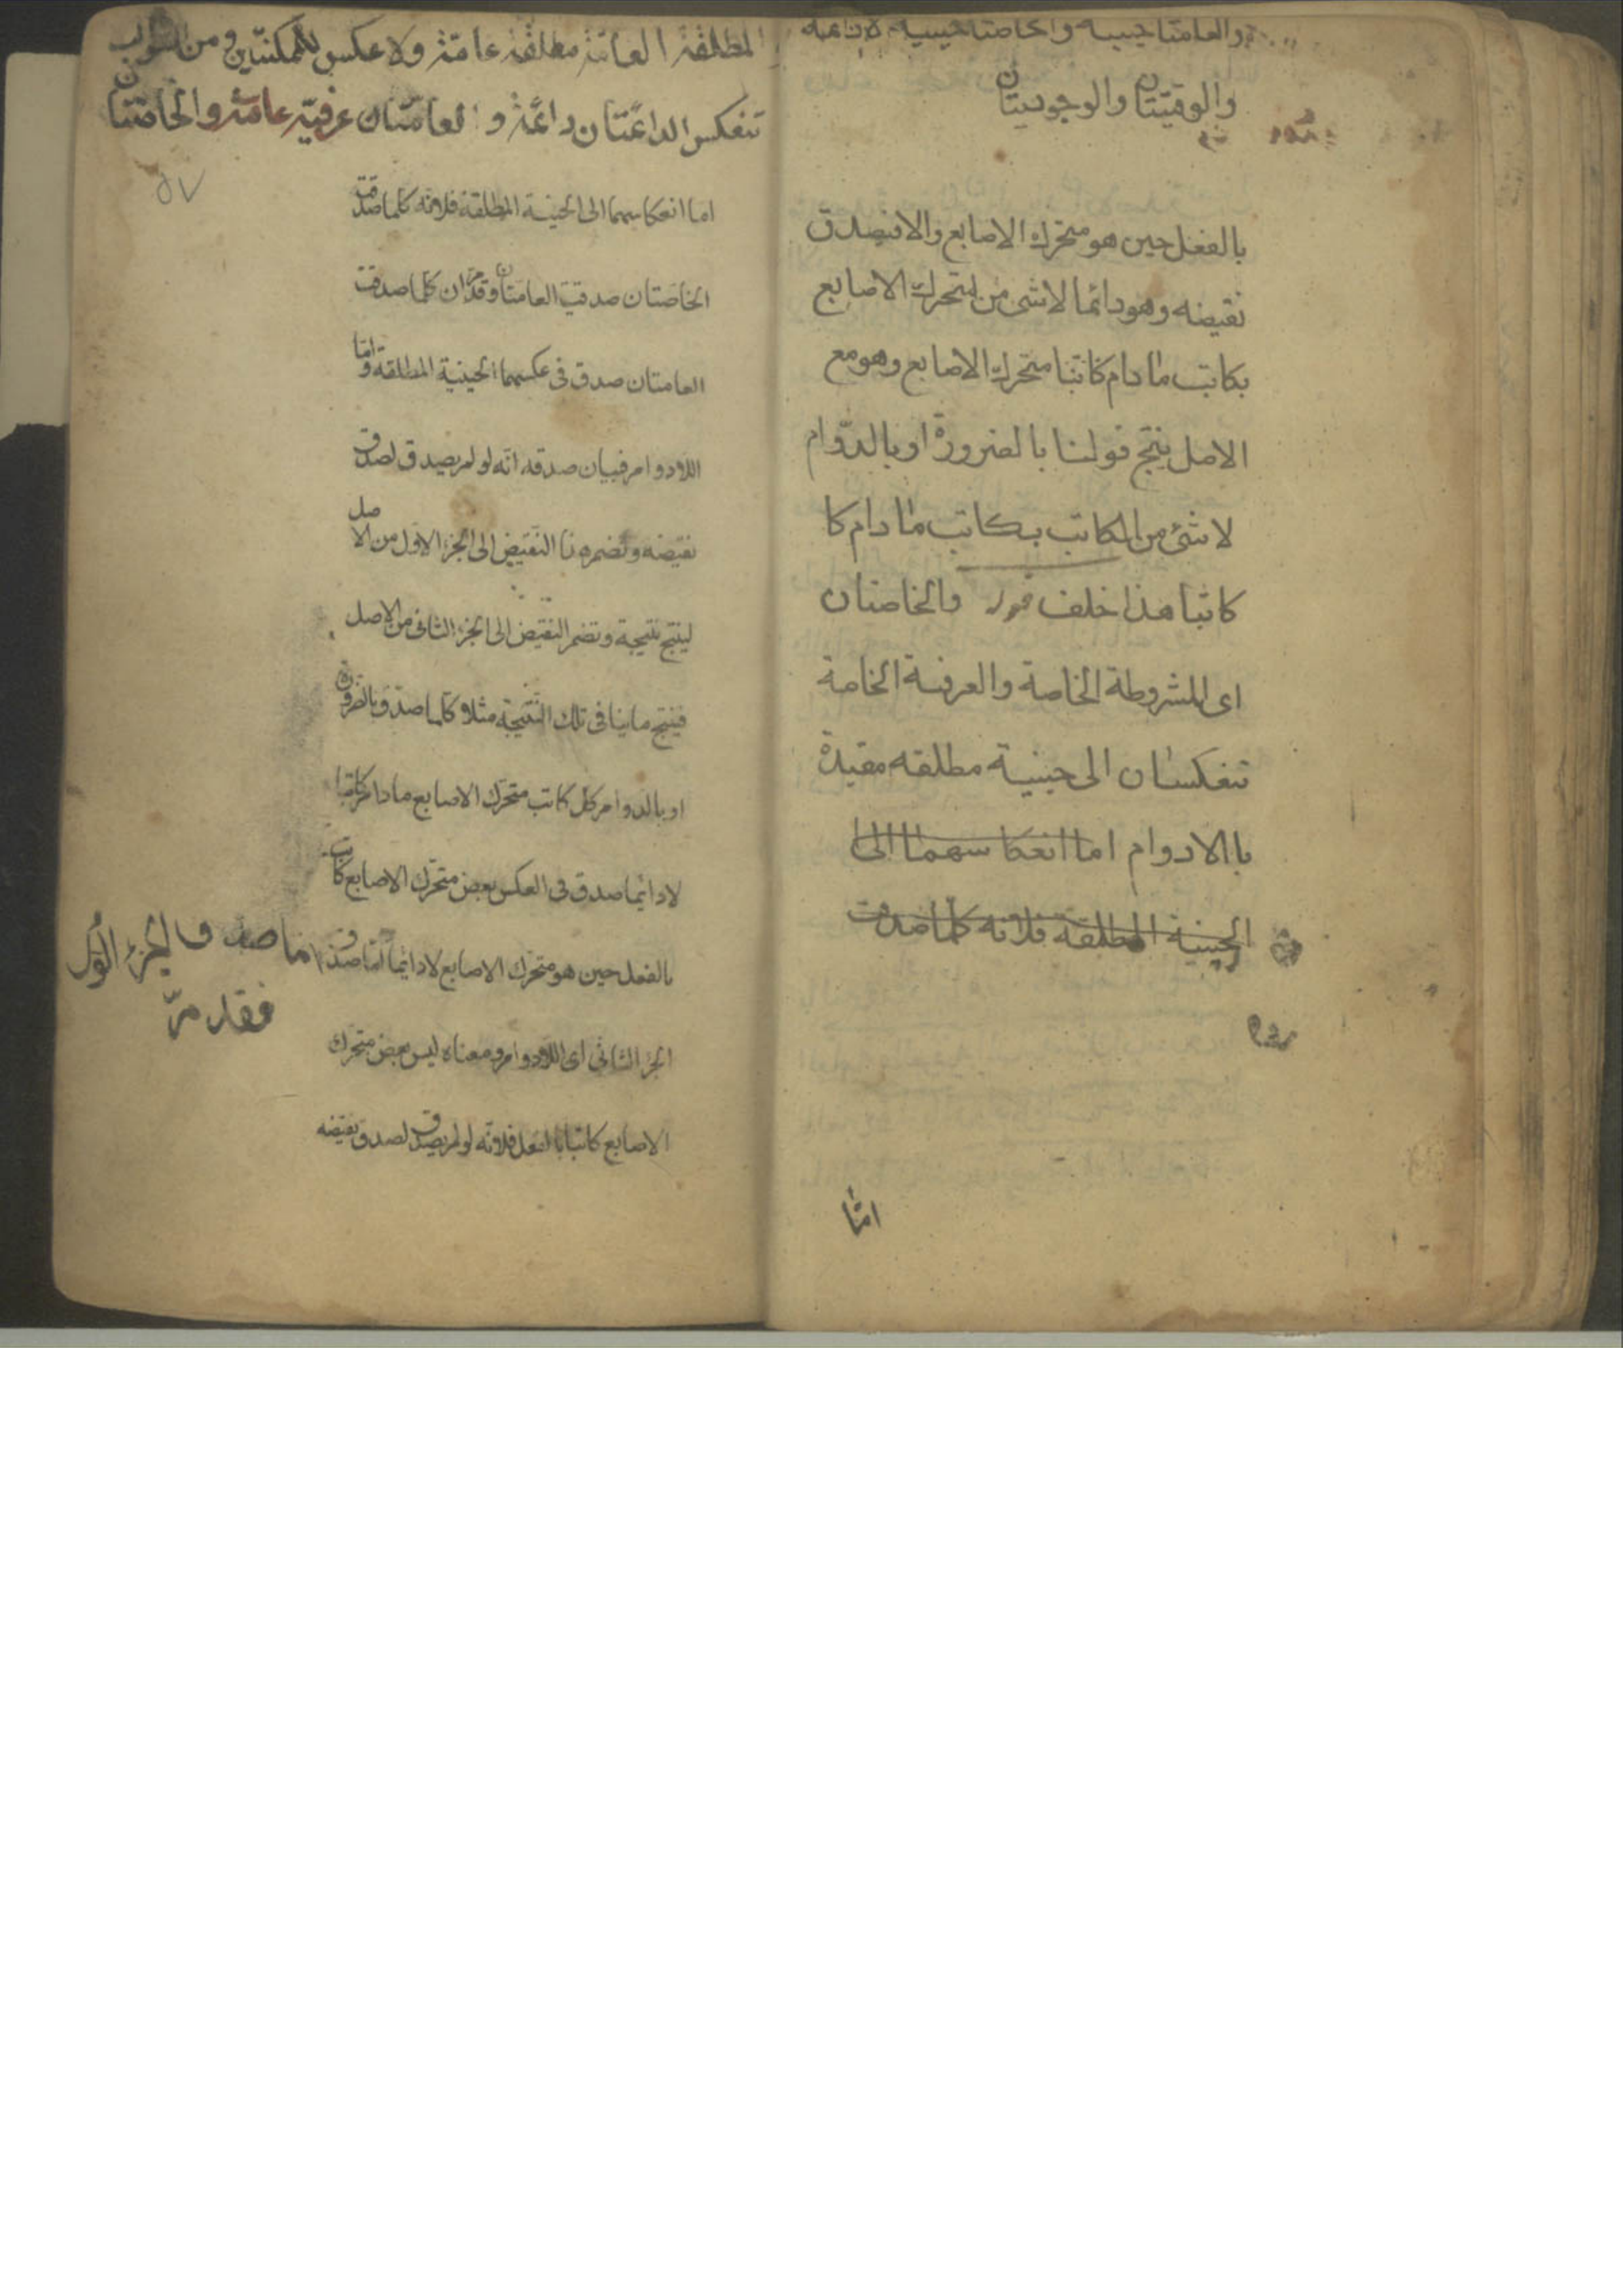 والعامتا حينية والخاصتا حينية لادائمة
والوقتيتان والوجوديتان
بالفعل حين هو متحرك الاصابع والا فيصدق
نقيضه وهو دائما لاشئ من المتحرك الاصابع
بكاتب ما دام كاتبا متحرك الاصابع وهو مع
الاصل ينتج قولنا بالضرورة او بالدوام
لا شئ من الكاتب بكاتب ما دام كا
كاتبا هذا خلف والخاصتان
اى المشروطة الخاصة والعرفية الخاصة
تنعكسان الى حينية مطلقه مقيدة
باالادوام اما انعكاسهما الى
الحينية المطلقة فلانه كلما صدقت
اما
المطلقة العامّة مطلقة عامّة ولا عكس للممكنتين ومن السوالب
تنعكس الدائمتان دائمة والعامتان عرفيّة عامّة والخاصّتان
٥٧
اما انعكاسهما الى الحينية المطلقة فلانه كلما صدقت
الخاصتان صدقت العامتان وقد مرّ ان كلما صدقت
العامتان صدق فى عكسهما الحينية المطلقة وامّا
اللادوام فبيان صدقه انّه لو لم يصدق لصدق
نقيضه ونضم هذا النقيض الى الجزء الاول من الاصل
لينتج نتيجة ونضم النقيض الى الجزء الثانى من الاصل
فينتج ما ينافى تلك النتيجة مثلا كلما صدق بالضرورة
او بالدوام كل كاتب متحرك الاصابع ما دام كاتبا
لادائما صدق فى العكس بعض متحرك الاصابع كاتب
بالفعل حين هو متحرك الاصابع لادائما امّا صدق
اما صدق الجزء الاول
فقد مرّ
الجزء الثانى اى اللادوام ومعناه ليس بعض متحرك
الاصابع كاتبا بالفعل فلانّه لو لم يصدق لصدق نقيضه